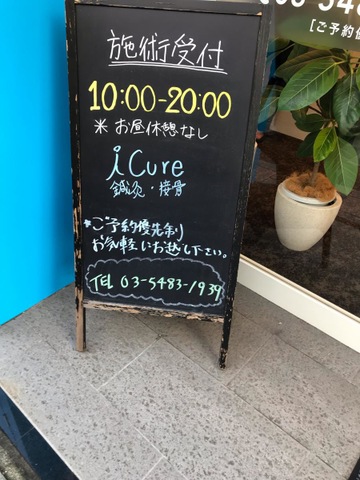 施術受付
10:00-20:00
※ お昼休憩なし
iCure
鍼灸・接骨
*ご予約優先制
お気軽にお越し下さい。
TEL 03-5483-1939
[ご予約優